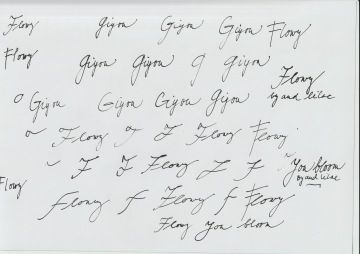 Flowy giyou Giyou Giyou Flowy
Flowy giyou Giyou g Giyou
Flowy
by and lilac
o Giyou Giyou Giyou giyou
Flowy F F Flowy Flowy
F F Flowy F F You bloom
by and lilac
Flowy
Flowy f Flowy f Flowy
Flowy You bloom